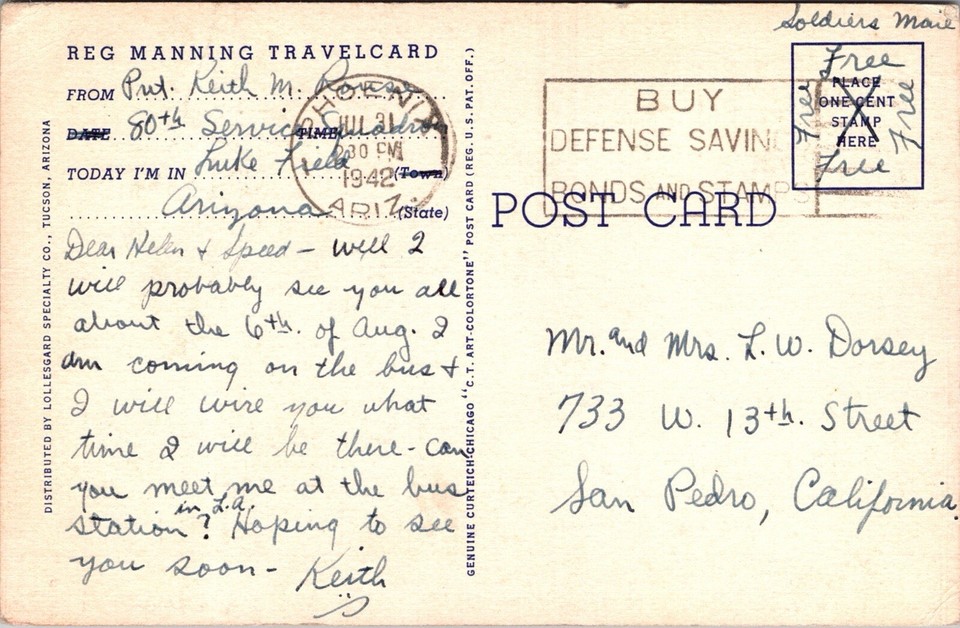 Soldiers Mail
REG MANNING TRAVELCARD
FROM Pvt. Keith M. Rouse
DATE 80th Service TIME Squadron
TODAY I'M IN Luke Field (Town)
Arizona (State)
Dear Helen & Speed - well I
will probably see you all
about the 6th. of Aug. I
am coming on the bus &
I will wire you what
time I will be there - can
you meet me at the bus
station in L.A.? Hoping to see
you soon - Keith
DISTRIBUTED BY LOLLESGARD SPECIALTY CO., TUCSON, ARIZONA
GENUINE CURTEICH-CHICAGO "C.T. ART-COLORTONE" POST CARD (REG. U.S. PAT. OFF.)
PHOENIX
JUL 31
230 PM
1942
ARIZ.
BUY
DEFENSE SAVIN
BONDS AND STAMPS
Free
Free
Free
Free
PLACE
ONE CENT
STAMP
HERE
POST CARD
Mr. and Mrs. L. W. Dorsey
733 W. 13th. Street
San Pedro, California.